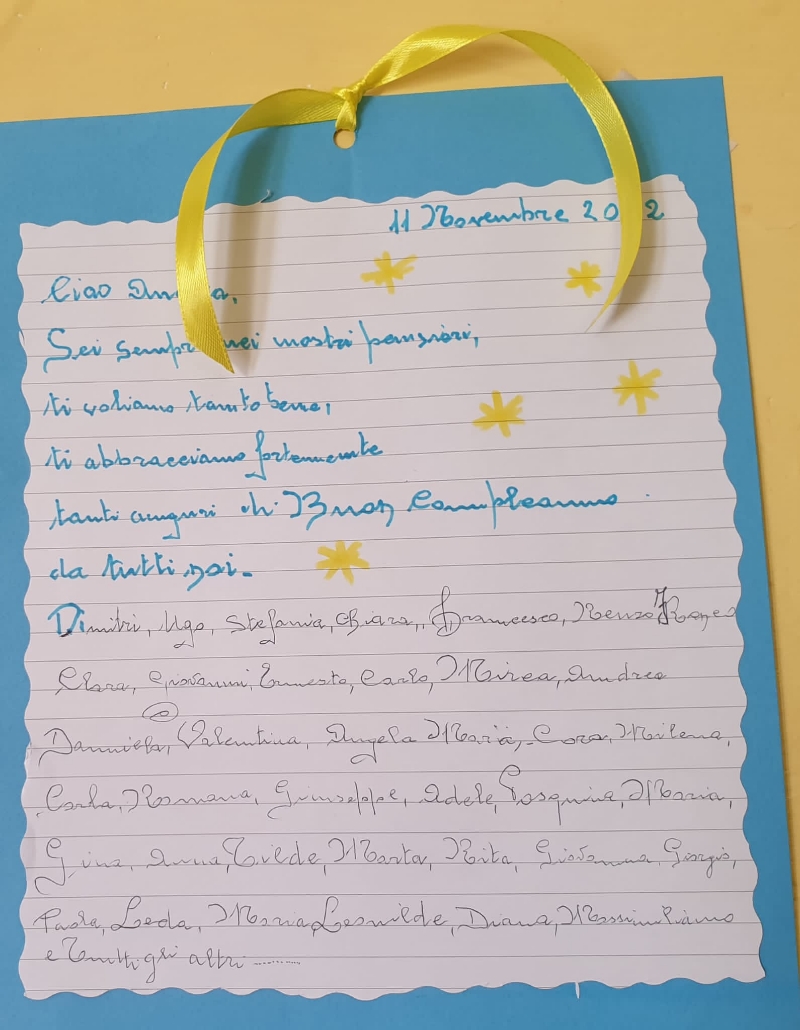 11 Novembre 20 2
Ciao
Sei sempr nei nostri pensieri,
ti voliamo tanto bene,
ti abbracciamo fortemente
tanti auguri di Buon Compleanno
da tutti noi.
Dimitri, Ugo, Stefania, Chiara, Francesco, Renzo
Clara, Giovanni, Ernesto, Carlo, Mirea, Andrea
Danniela, Valentina, Angela Maria, Cora, Milena,
Carla, Romana, Giuseppe, Adele, Pasquina, Maria,
Gina, Anna, Tilde, Marta, Rita, Giovanna, Giorgio,
Paola, Leda, Maria Leonilde, Diana, Massimiliano
e Tutti gli altri ..........